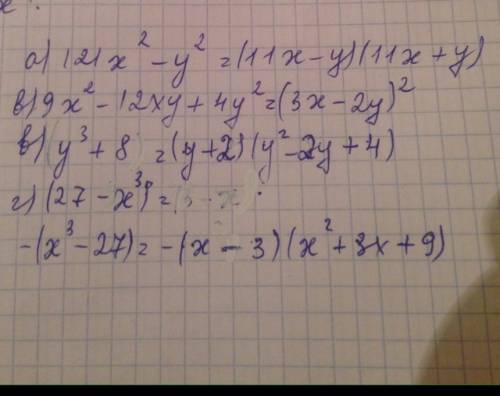 а) 121x² - y² = (11x - y)(11x + y)
в) 9x² - 12xy + 4y² = (3x - 2y)²
в) (y³ + 8) = (y + 2)(y² - 2y + 4)
г) (27 - x³) =
-(x³ - 27) = -(x - 3)(x² + 3x + 9)